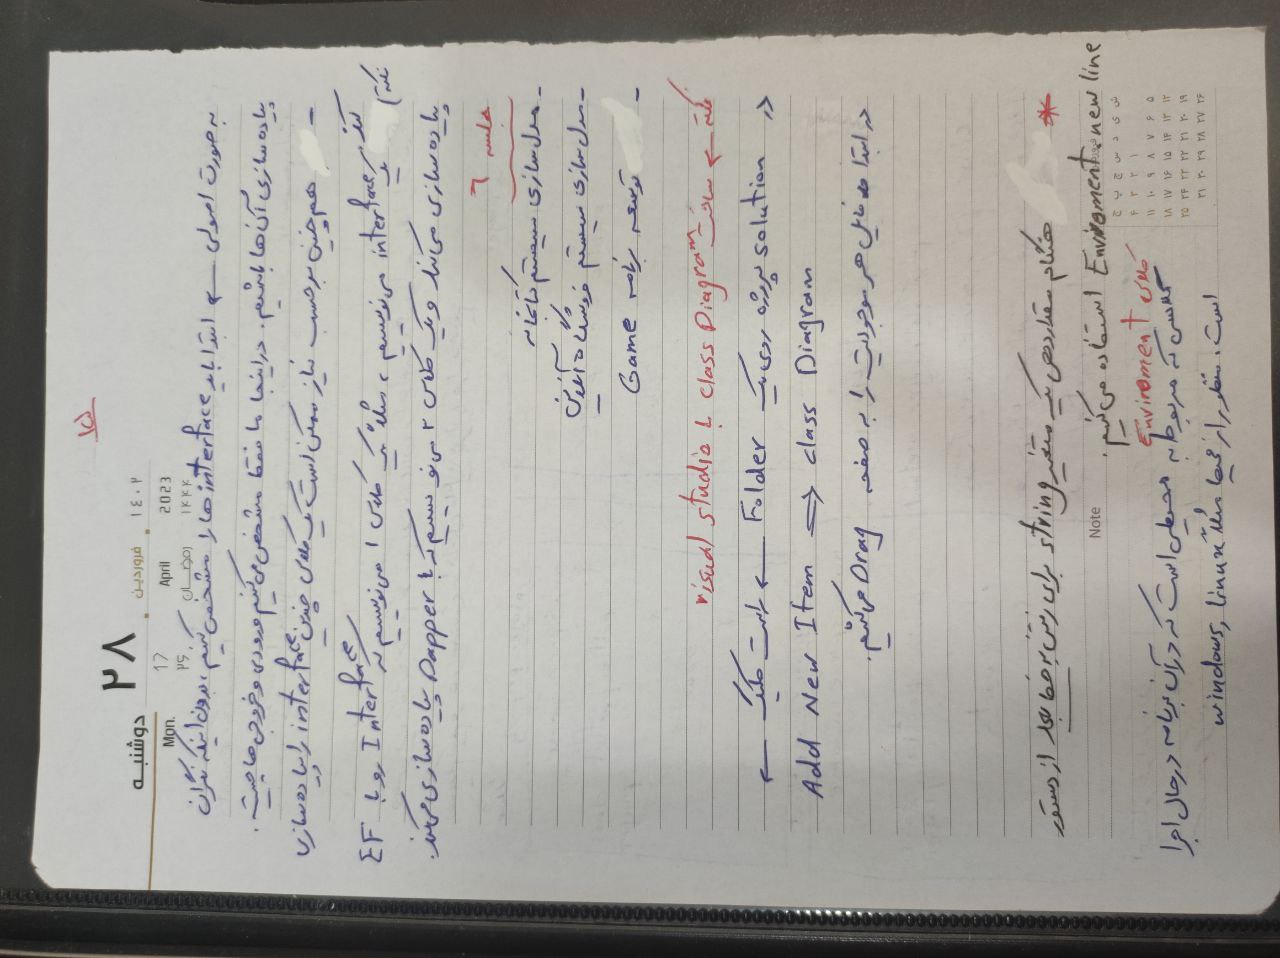 ۱۵
دوشنبه ۲۸ فروردین ۱۴۰۲
Mon. 17 April 2023
۲۵ رمضان ۱۴۴۴
به صورت اصولی ← ابتدا باید interface ها را مشخص کنیم، بدون اینکه نگران
پیاده سازی آن ها باشیم. در اینجا ما فقط مشخص می کنیم ورودی و خروجی ها چیست.
- هم چنین بر حسب نیاز ممکن است یک کلاس چندین interface را پیاده سازی
کند.
نکته) یک interface می نویسیم، مثلاً یک کلاس ۱ می نویسیم که Interface رو با EF
پیاده سازی می کند و یک کلاس ۲ می نویسیم که با Dapper پیاده سازی می کند.
جلسه ۶
- مدل سازی سیستم کتابخانه
- مدل سازی سیستم فروشگاه آنلاین
- توسعه برنامه Game
نکته ← ساخت class Diagram با visual studio
در solution پروژه روی یک Folder ← راست کلیک ←
Add New Item ⇒ class Diagram
در ابتدا فایل هر موجودیت را به صفحه Drag می کنیم.
* هنگام مقداردهی یک متغیر string برای رفتن به خط بعد از دستور
Enviroment.new line استفاده می کنیم.
Note
فروردین
ش ی د س چ پ ج
۱ ۲ ۳ ۴
۵ ۶ ۷ ۸ ۹ ۱۰ ۱۱
۱۲ ۱۳ ۱۴ ۱۵ ۱۶ ۱۷ ۱۸
۱۹ ۲۰ ۲۱ ۲۲ ۲۳ ۲۴ ۲۵
۲۶ ۲۷ ۲۸ ۲۹ ۳۰ ۳۱
کلاس Enviroment
کلاسی که مربوط به محیطی است که در آن برنامه در حال اجرا
است. منظور از محیط مثلاً windows, linux